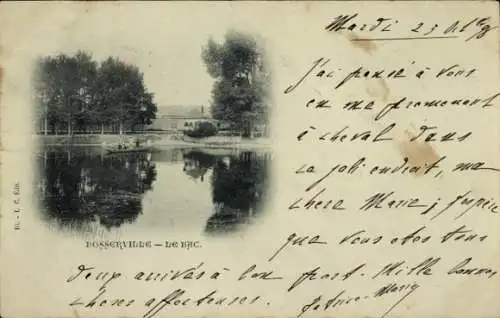 Mardi 23
J'ai pensé à vous
en me promenant
à cheval dans
ce joli endroit, ma
chère Marie, j'espère
que vous êtes tous
10. - L. F. Edit.
BOSSERVILLE - LE BAC.
deux arrivés à bon port. Mille bonnes
choses affectueuses